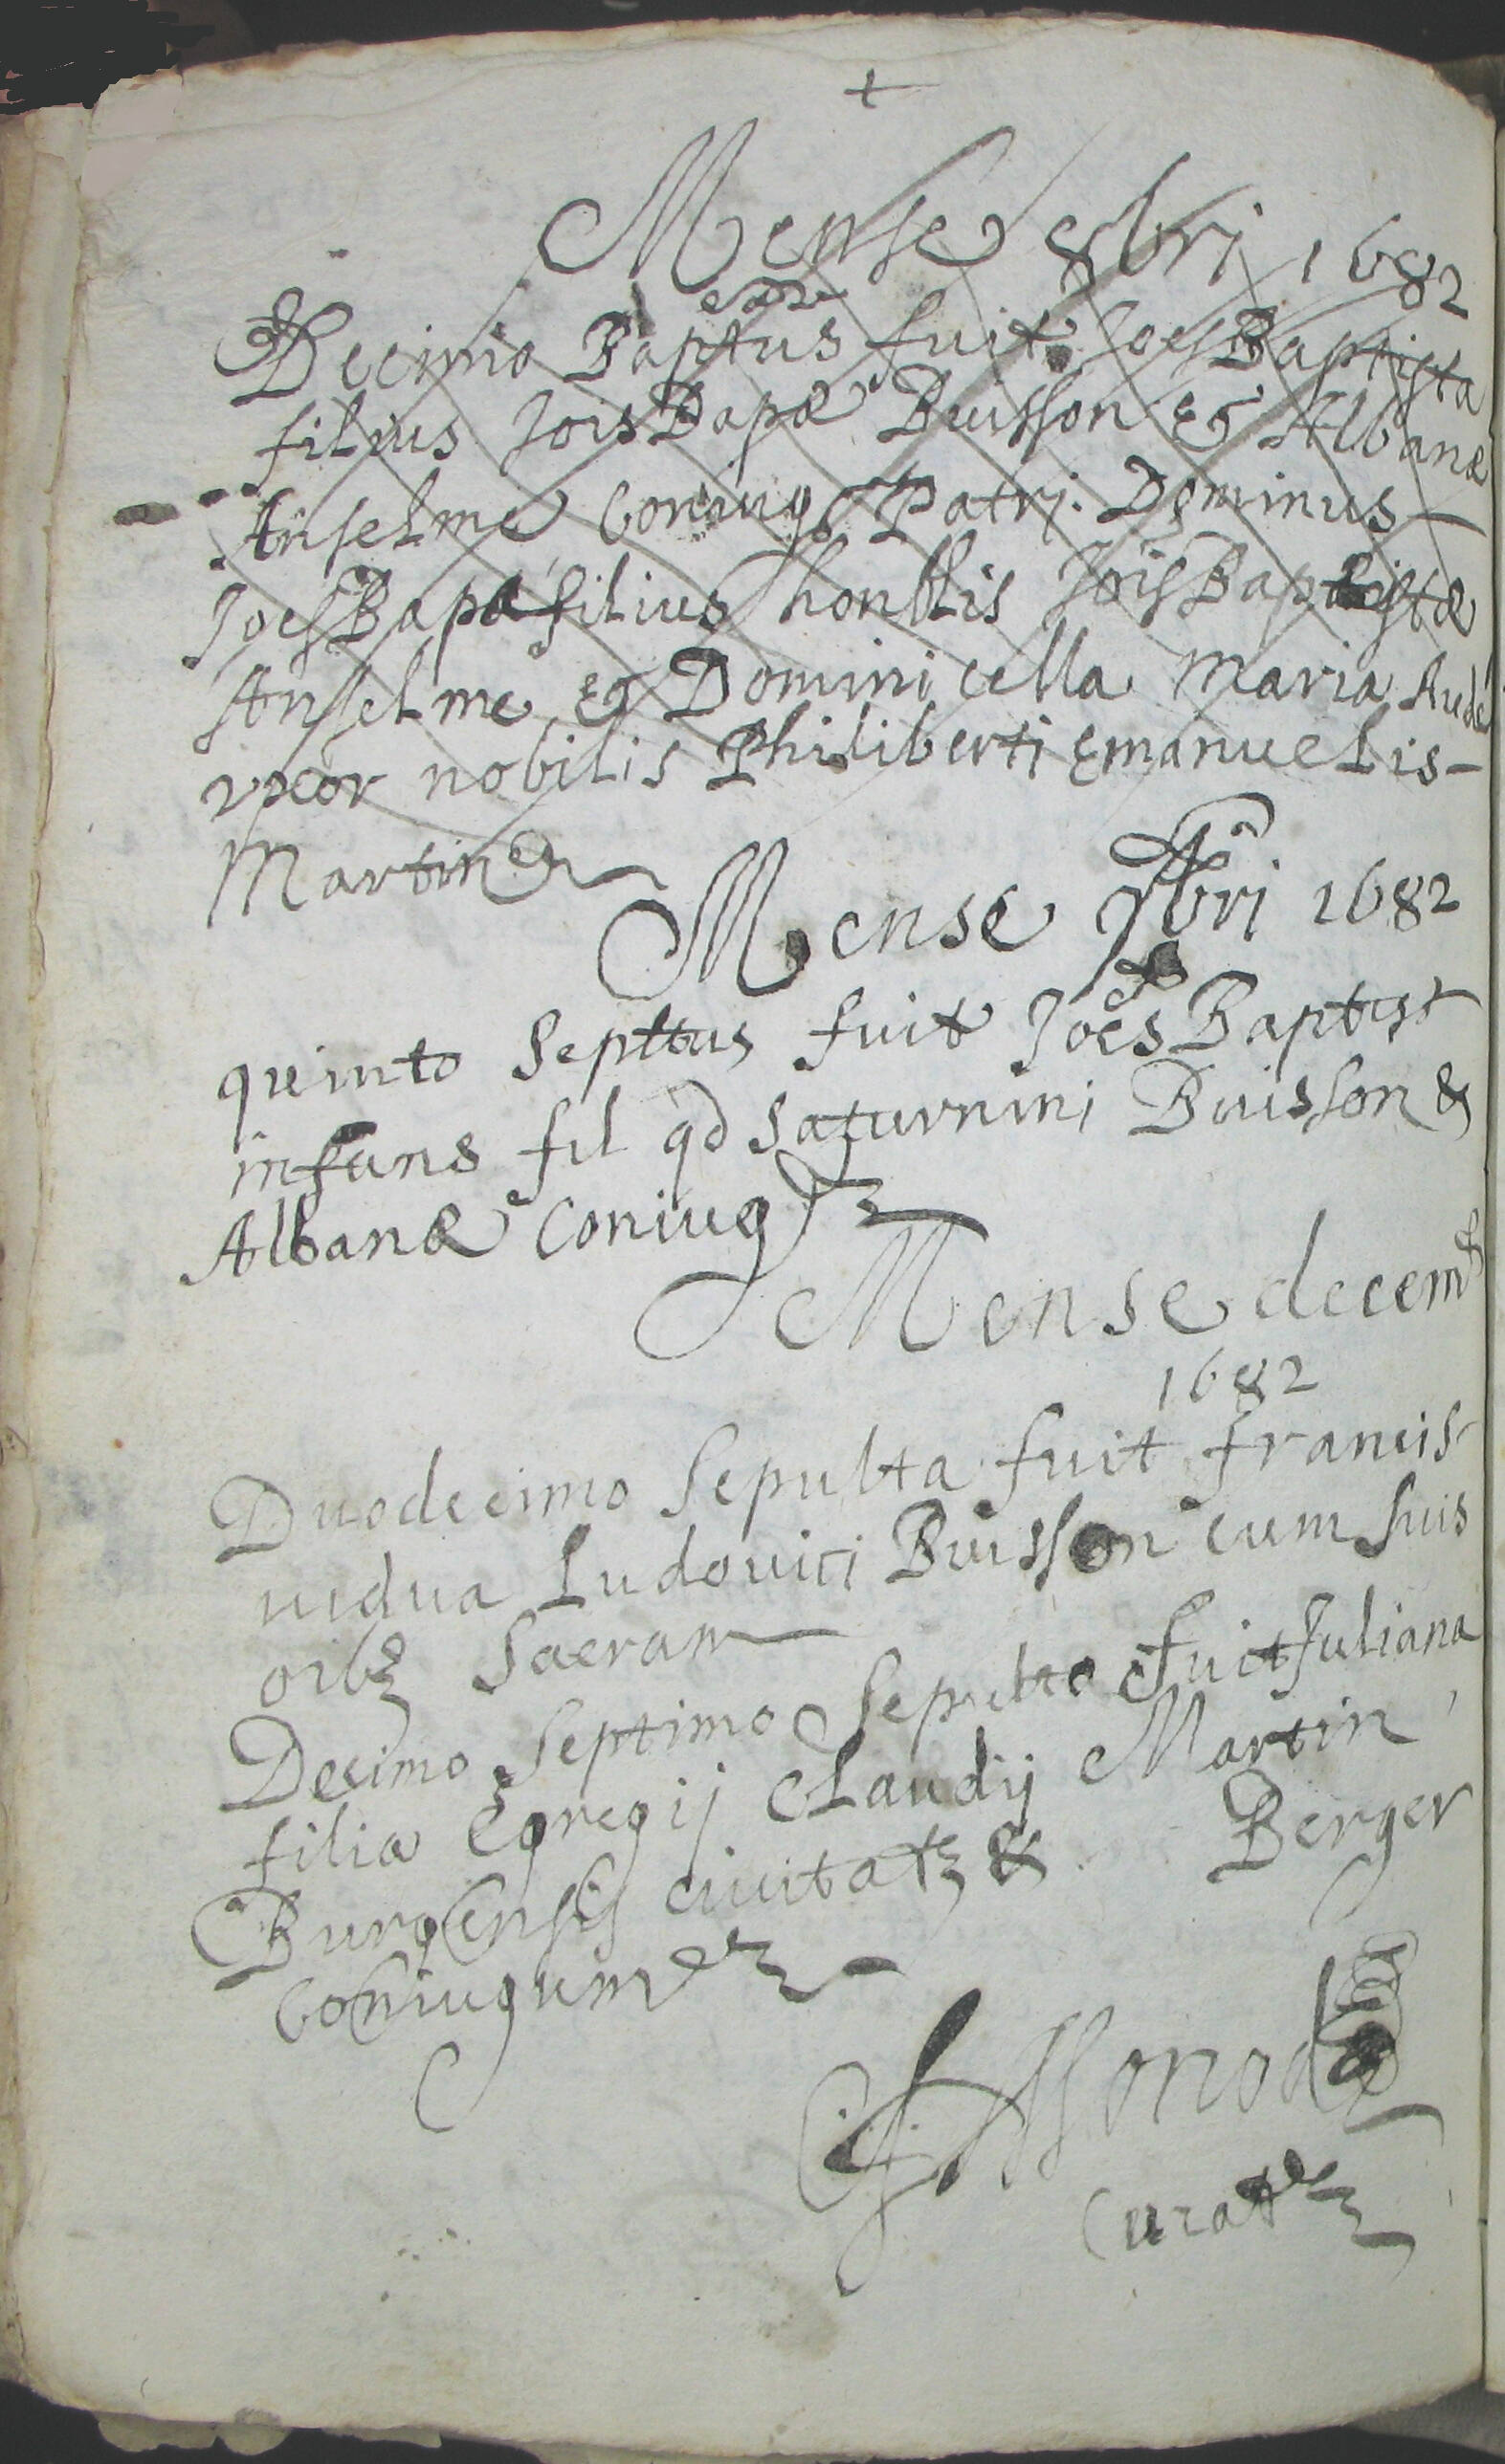 +
Mense 8bri 1682
Decimo Baptus fuit Joes Baptista
filius Jois Bapæ Buisson & Albanæ
Anselme Coniug Patrj. Dominus
Joes Bapa filius honblis Jois Baptistæ
Anselme & Dominicella Maria Aude
vxor nobilis Philiberti Emanuelis -
Martin
Mense 9bri 1682
quinto Sepltus fuit Joes Baptist
infans fil qd Saturnini Buisson &
Albanæ Coniug
Mense decem
1682
Duodecimo Sepulta fuit francis
uidua Ludouici Buisson cum suis
oibz Sacram
Decimo septimo Sepulta fuit Juliana
filia Egregij Claudij Martin
Burgensis ciuitatz & Berger
Coniugum
Monod
Curat